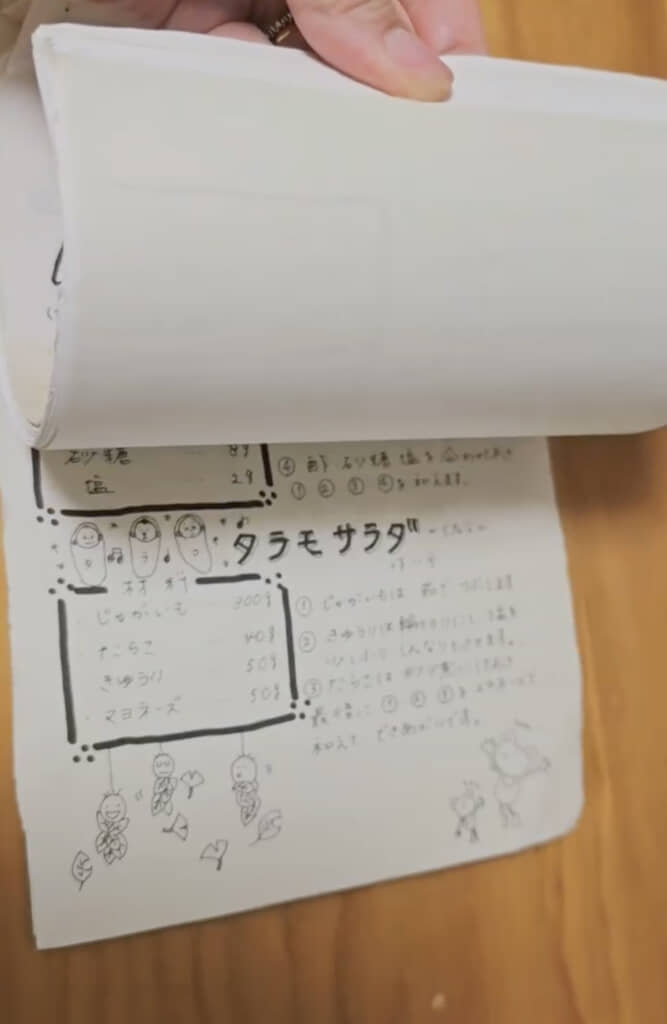 砂糖 8g
塩 2g
④ 酢 砂糖 塩を合わせておき
① ② ③ ④を和えます。
タラコ
タラモサラダ
材料
じゃがいも 300g
たらこ 40g
きゅうり 50g
マヨネーズ 50g
① じゃがいもは 茹で つぶします
② きゅうりは輪切りにし 塩を
しんなりさせます。
③ たらこは
最後に ① ② ③を マヨネーズで
和えて できあがりです。